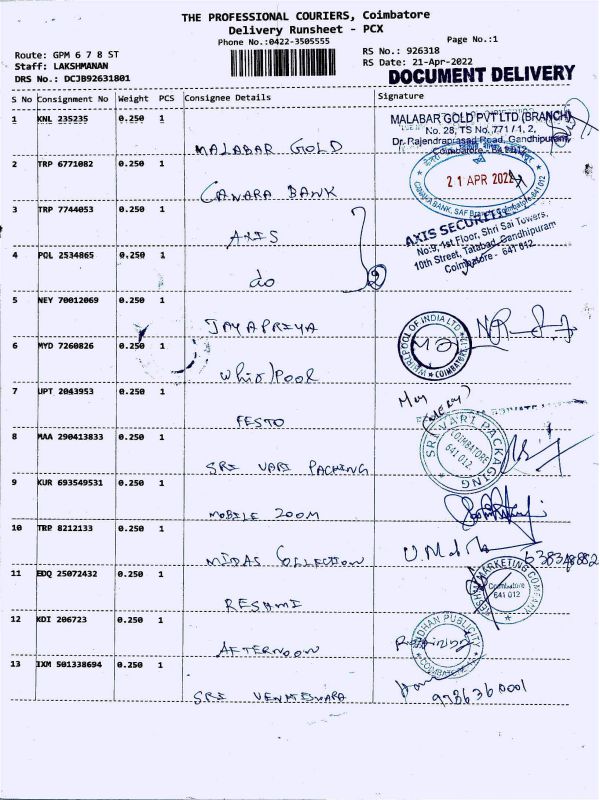 THE PROFESSIONAL COURIERS, Coimbatore
Delivery Runsheet - PCX
Phone No.:0422-3505555
Page No.:1
Route: GPM 6 7 8 ST
RS No.: 926318
Staff: LAKSHMANAN
RS Date: 21-Apr-2022
DRS No.: DCJB92631801
DOCUMENT DELIVERY
S No Consignment No Weight PCS Consignee Details Signature
1 KNL 235235 0.250 1
MALABAR GOLD PVT LTD (BRANCH)
No. 28, TS No. 771 / 1, 2,
Dr. Rajendraprasad Road, Gandhipuram,
MALABAR GOLD
2 TRP 6771082 0.250 1
21 APR 2022
CANARA BANK
CANARA BANK, SAF
3 TRP 7744053 0.250 1
AXIS SECURITIES
No:9, 1st Floor, Shri Sai Towers,
10th Street, Tatabad, Gandhipuram
Coimbatore - 641 012
AXIS
4 POL 2534865 0.250 1
do
2
5 NEY 70012069 0.250 1
JAYAPRIYA
6 MYD 7260826 0.250 1
WHIRLPOOL OF INDIA LTD
COIMBATORE
Whirlpool
7 UPT 2043953 0.250 1
FESTO
8 MAA 290413833 0.250 1
SRI VARI PACKAGING
COIMBATORE
641 012
SRI VARI PACKING
9 KUR 693549531 0.250 1
MOBILE ZOOM
10 TRP 8212133 0.250 1
MIDAS COLLECTION
11 EDQ 25072432 0.250 1
MARKETING COMPANY
Coimbatore
641 012
RESHMI
12 KDI 206723 0.250 1
PUBLICITY
COIMBATORE
AFTERNOON
13 IXM 501338694 0.250 1
SRI VENKESWARA
9786360001